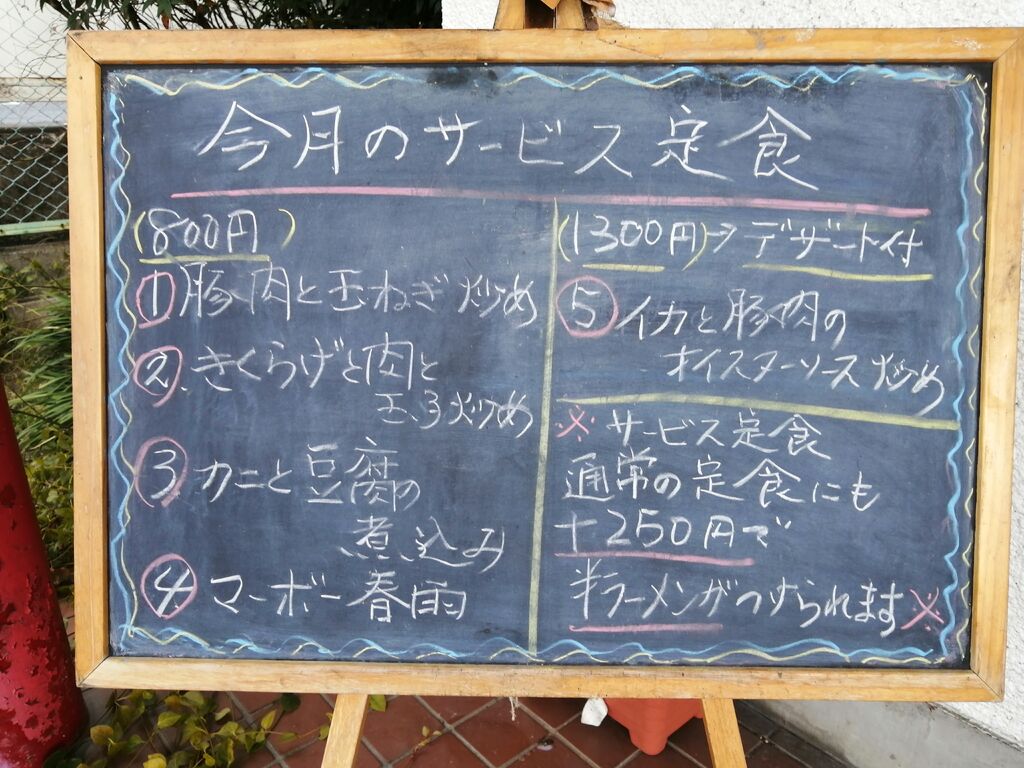 今月のサービス定食
(800円)
①豚肉と玉ねぎ炒め
②.きくらげと肉と
玉子炒め
③カニと豆腐の
煮込み
④マーボー春雨
(1300円)→デザート付
⑤イカと豚肉の
オイスターソース炒め
※サービス定食
通常の定食にも
+250円で
半ラーメンがつけられます※